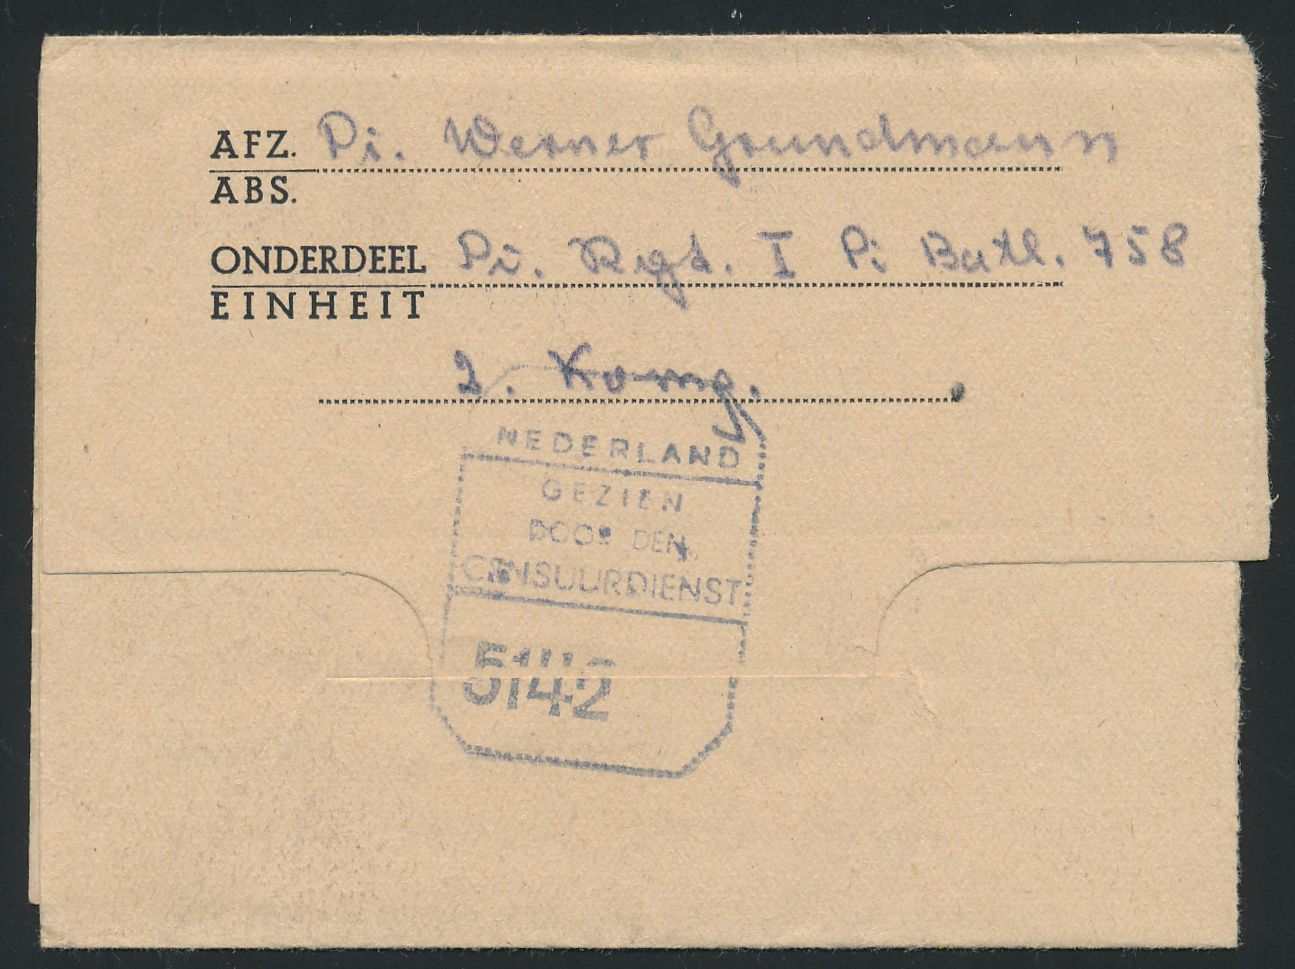 AFZ. Pi. Werner Grundmann
ABS.
ONDERDEEL Pi. Rgt. I Pi Batl. 758
EINHEIT
2. Komp.
NEDERLAND
GEZIEN
DOOR DEN
CENSUURDIENST
5142